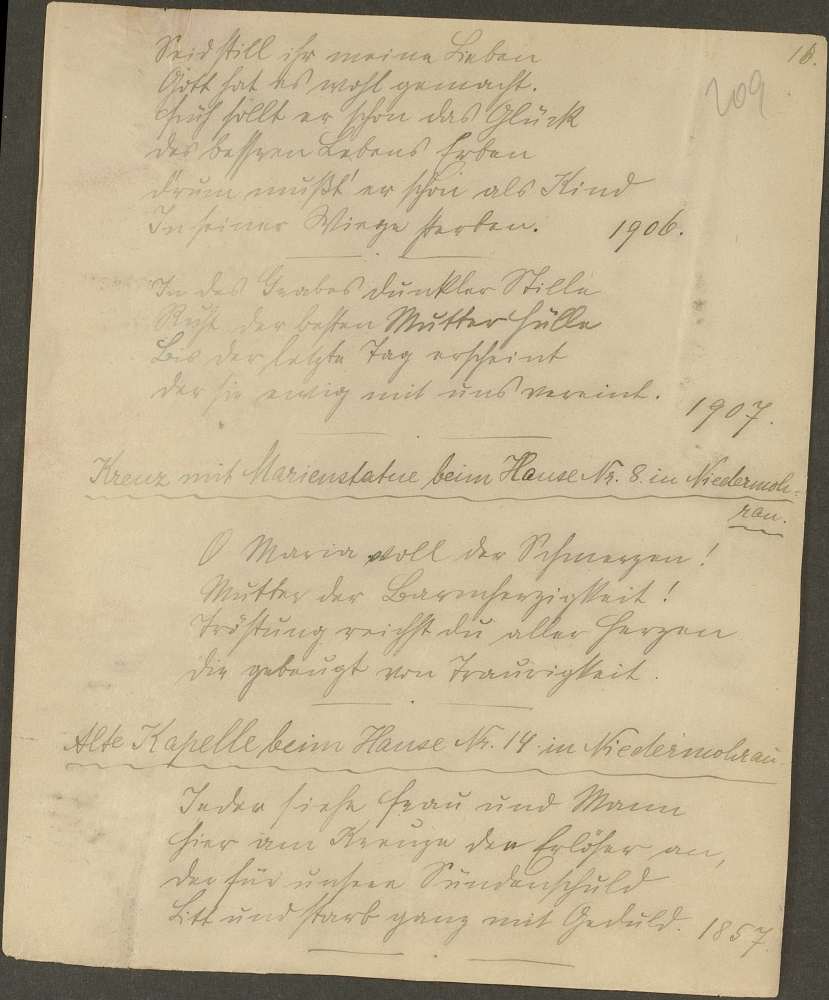 16.
209
Seid still ihr meine Lieben
Gott hat es wohl gemacht.
Früh sollt er schon das Glück
des bessren Lebens Erben
d'rum mußt' er schon als Kind
In seiner Wiege sterben. 1906.
In des Grabes dunkler Stille
Ruht der besten Mutter Hülle
Bis der letzte Tag erscheint
der sie ewig mit uns vereint. 1907.
Kreuz mit Marienstatue beim Hause Nr. 8. in Niedermoh-
rau.
O Maria voll der Schmerzen!
Mutter der Barmherzigkeit!
Tröstung reichst du aller Herzen
die gebeugt von Traurigkeit.
Alte Kapelle beim Hause Nr. 14 in Niedermohrau.
Jeder siehe Frau und Mann
hier am Kreuze den Erlöser an,
der für unsere Sündenschuld
Litt und starb ganz mit Geduld. 1857.